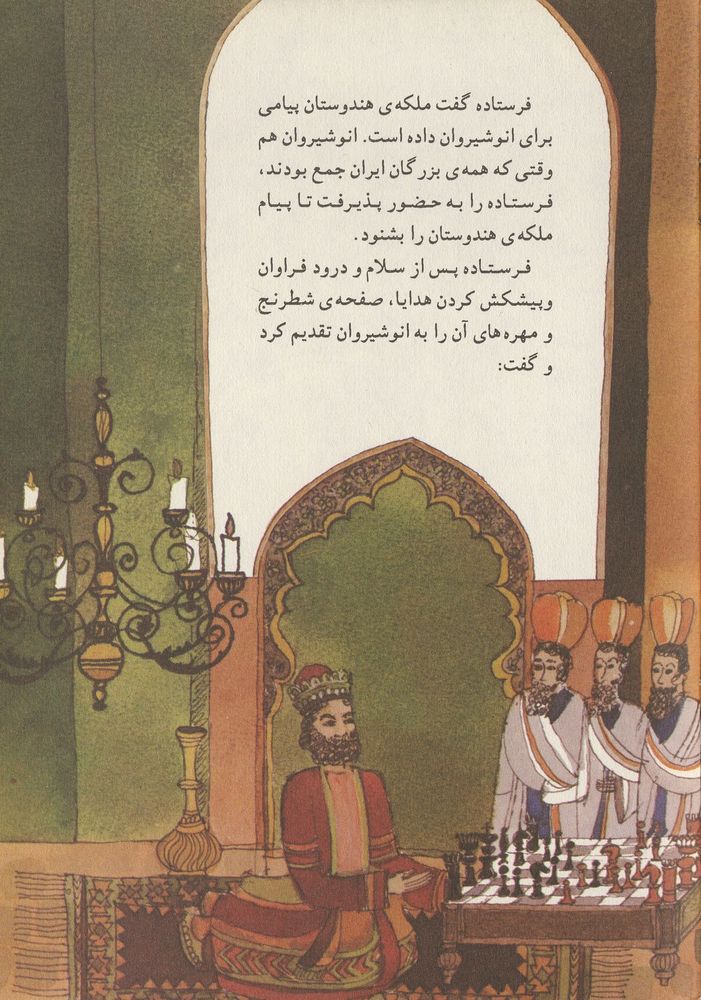 فرستاده گفت ملکه‌ی هندوستان پیامی
برای انوشیروان داده است. انوشیروان هم
وقتی که همه‌ی بزرگان ایران جمع بودند،
فرستاده را به حضور پذیرفت تا پیام
ملکه‌ی هندوستان را بشنود.
فرستاده پس از سلام و درود فراوان
وپیشکش کردن هدایا، صفحه‌ی شطرنج
و مهره‌های آن را به انوشیروان تقدیم کرد
و گفت: